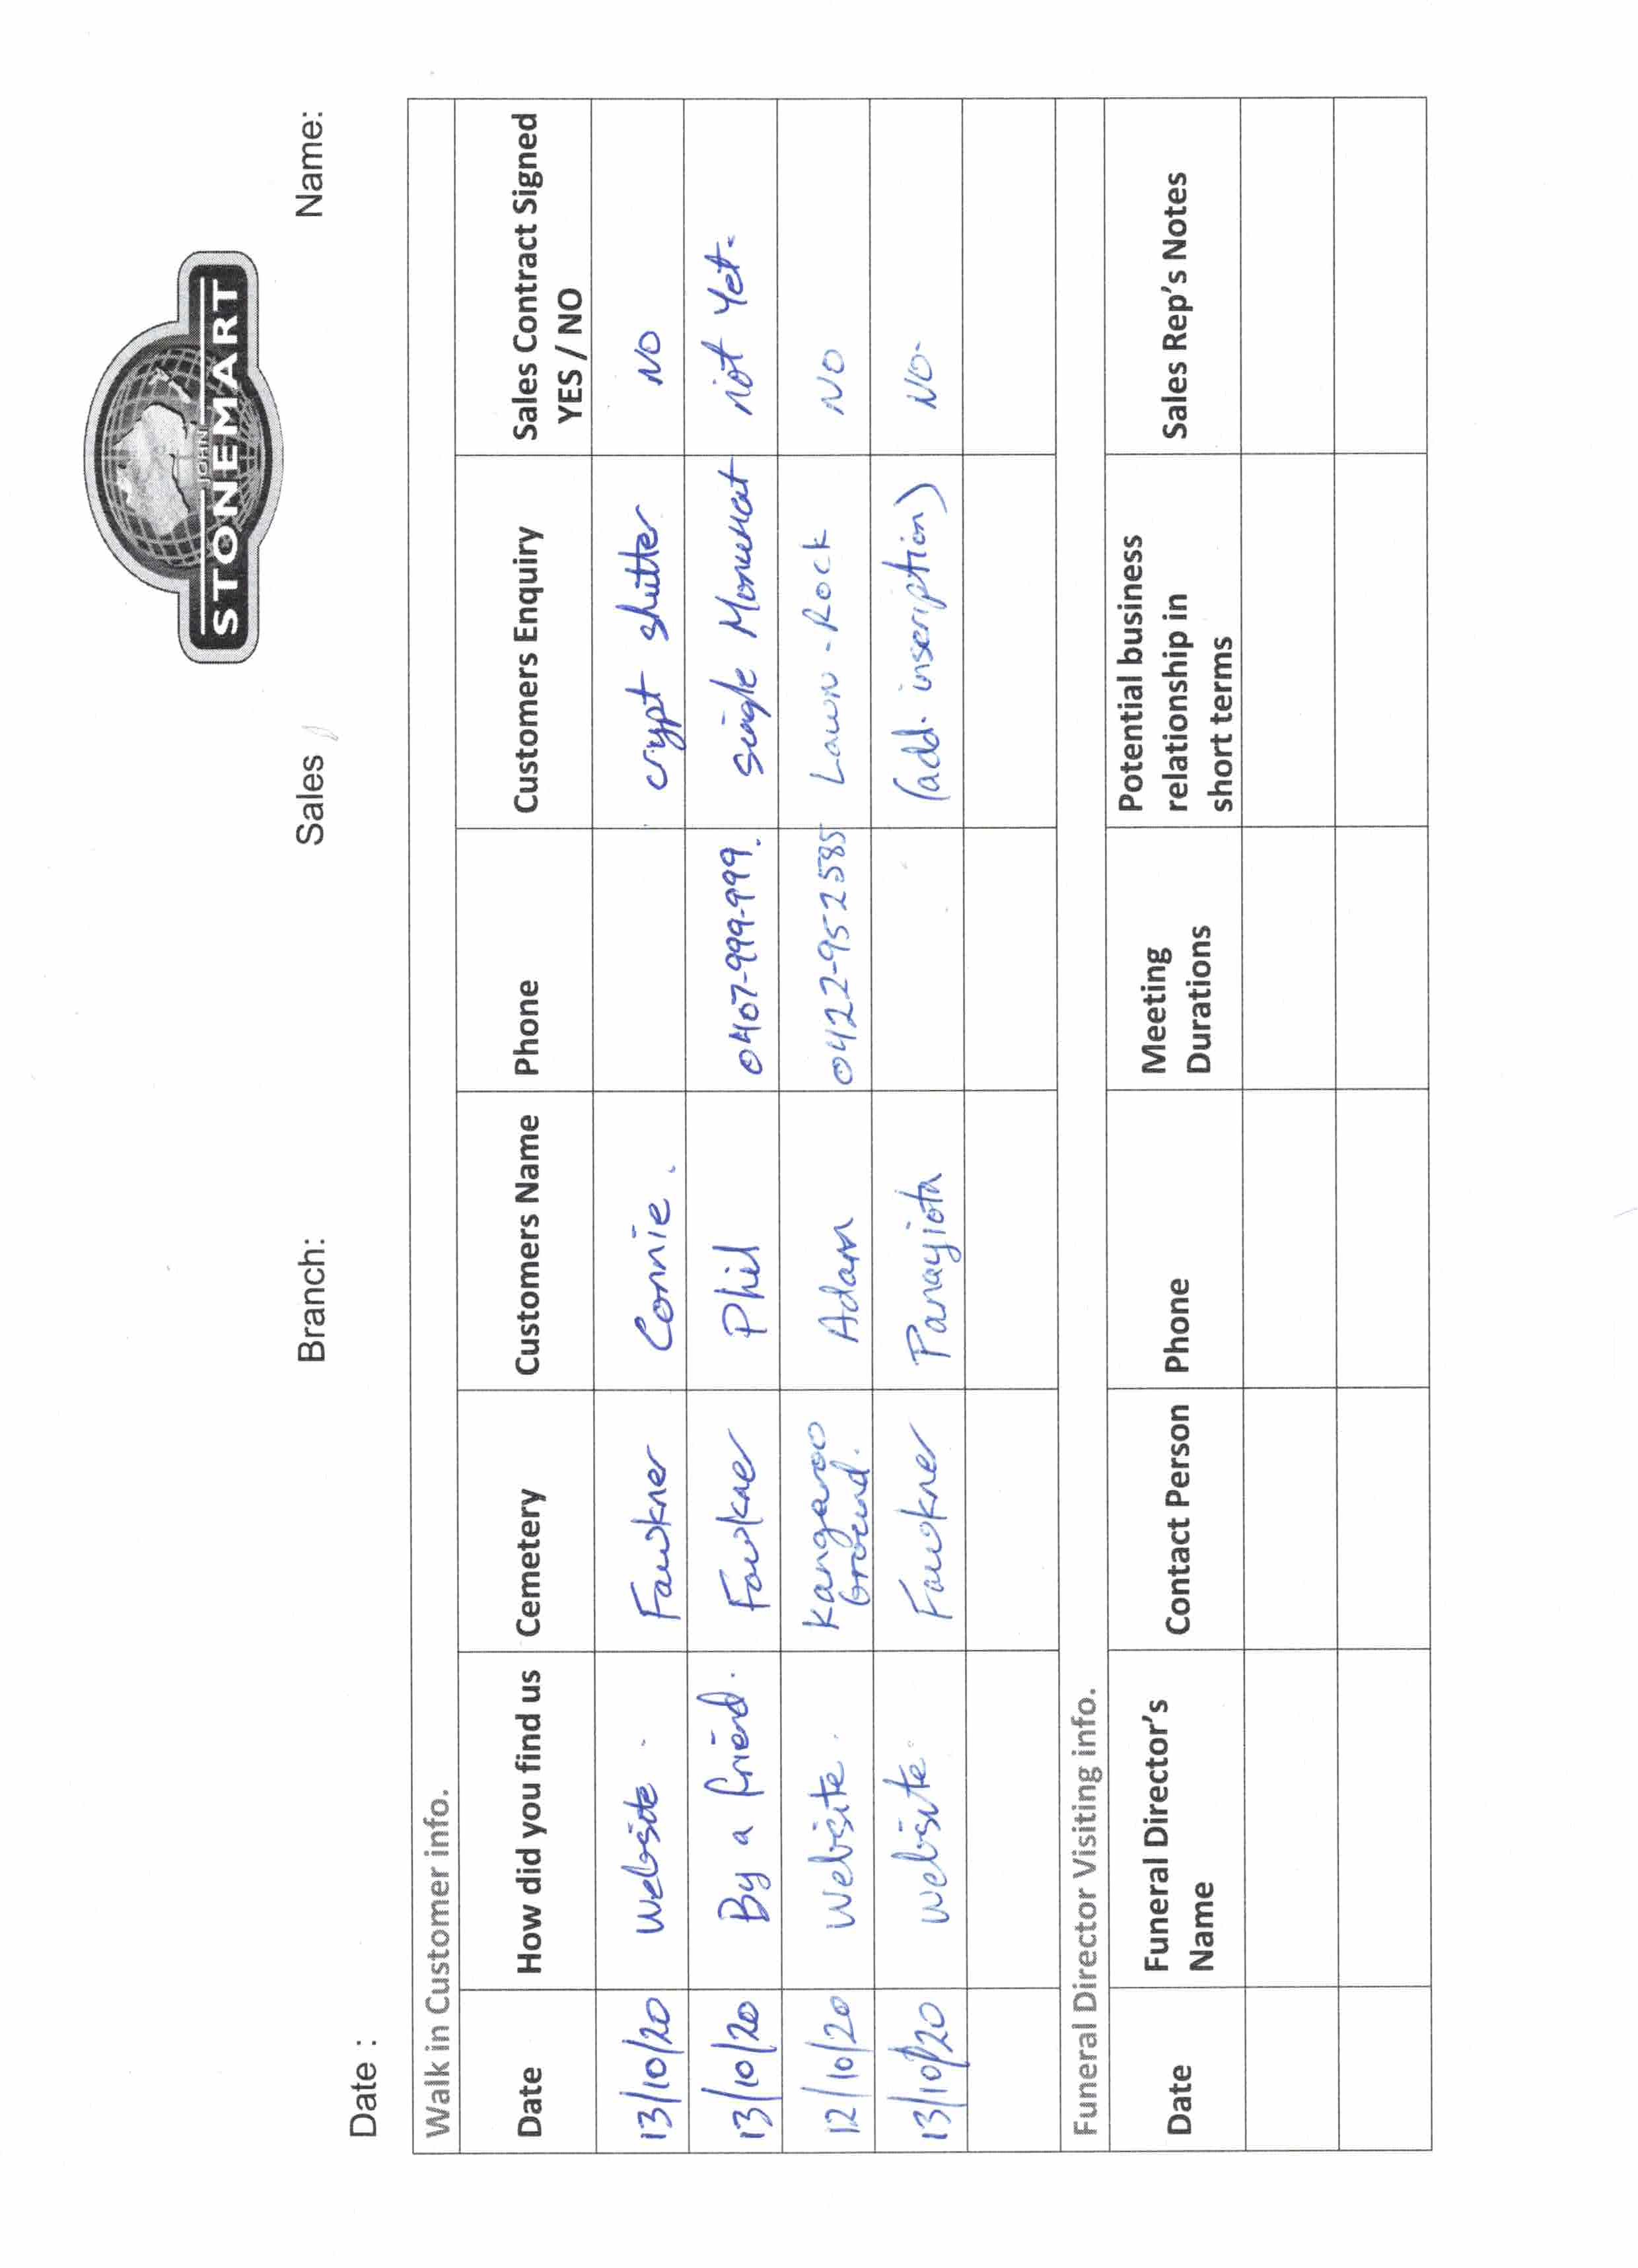 JOHN
STONEMART
Branch: Sales Name:
Date :
Walk in Customer info.
Date How did you find us Cemetery Customers Name Phone Customers Enquiry Sales Contract Signed
YES / NO
13/10/20 Website. Fawkner Connie. crypt shutter NO
13/10/20 By a friend. Fawkner Phil 0407-999-999. Single Monumat not yet.
12/10/20 Website. Kangaroo Ground. Adam 0422-952585 Lawn-Rock NO
13/10/20 Website Fawkner Panayiota (add. inscription) NO.
Funeral Director Visiting info.
Date Funeral Director's Contact Person Phone Meeting Potential business Sales Rep's Notes
Name Durations relationship in
short terms